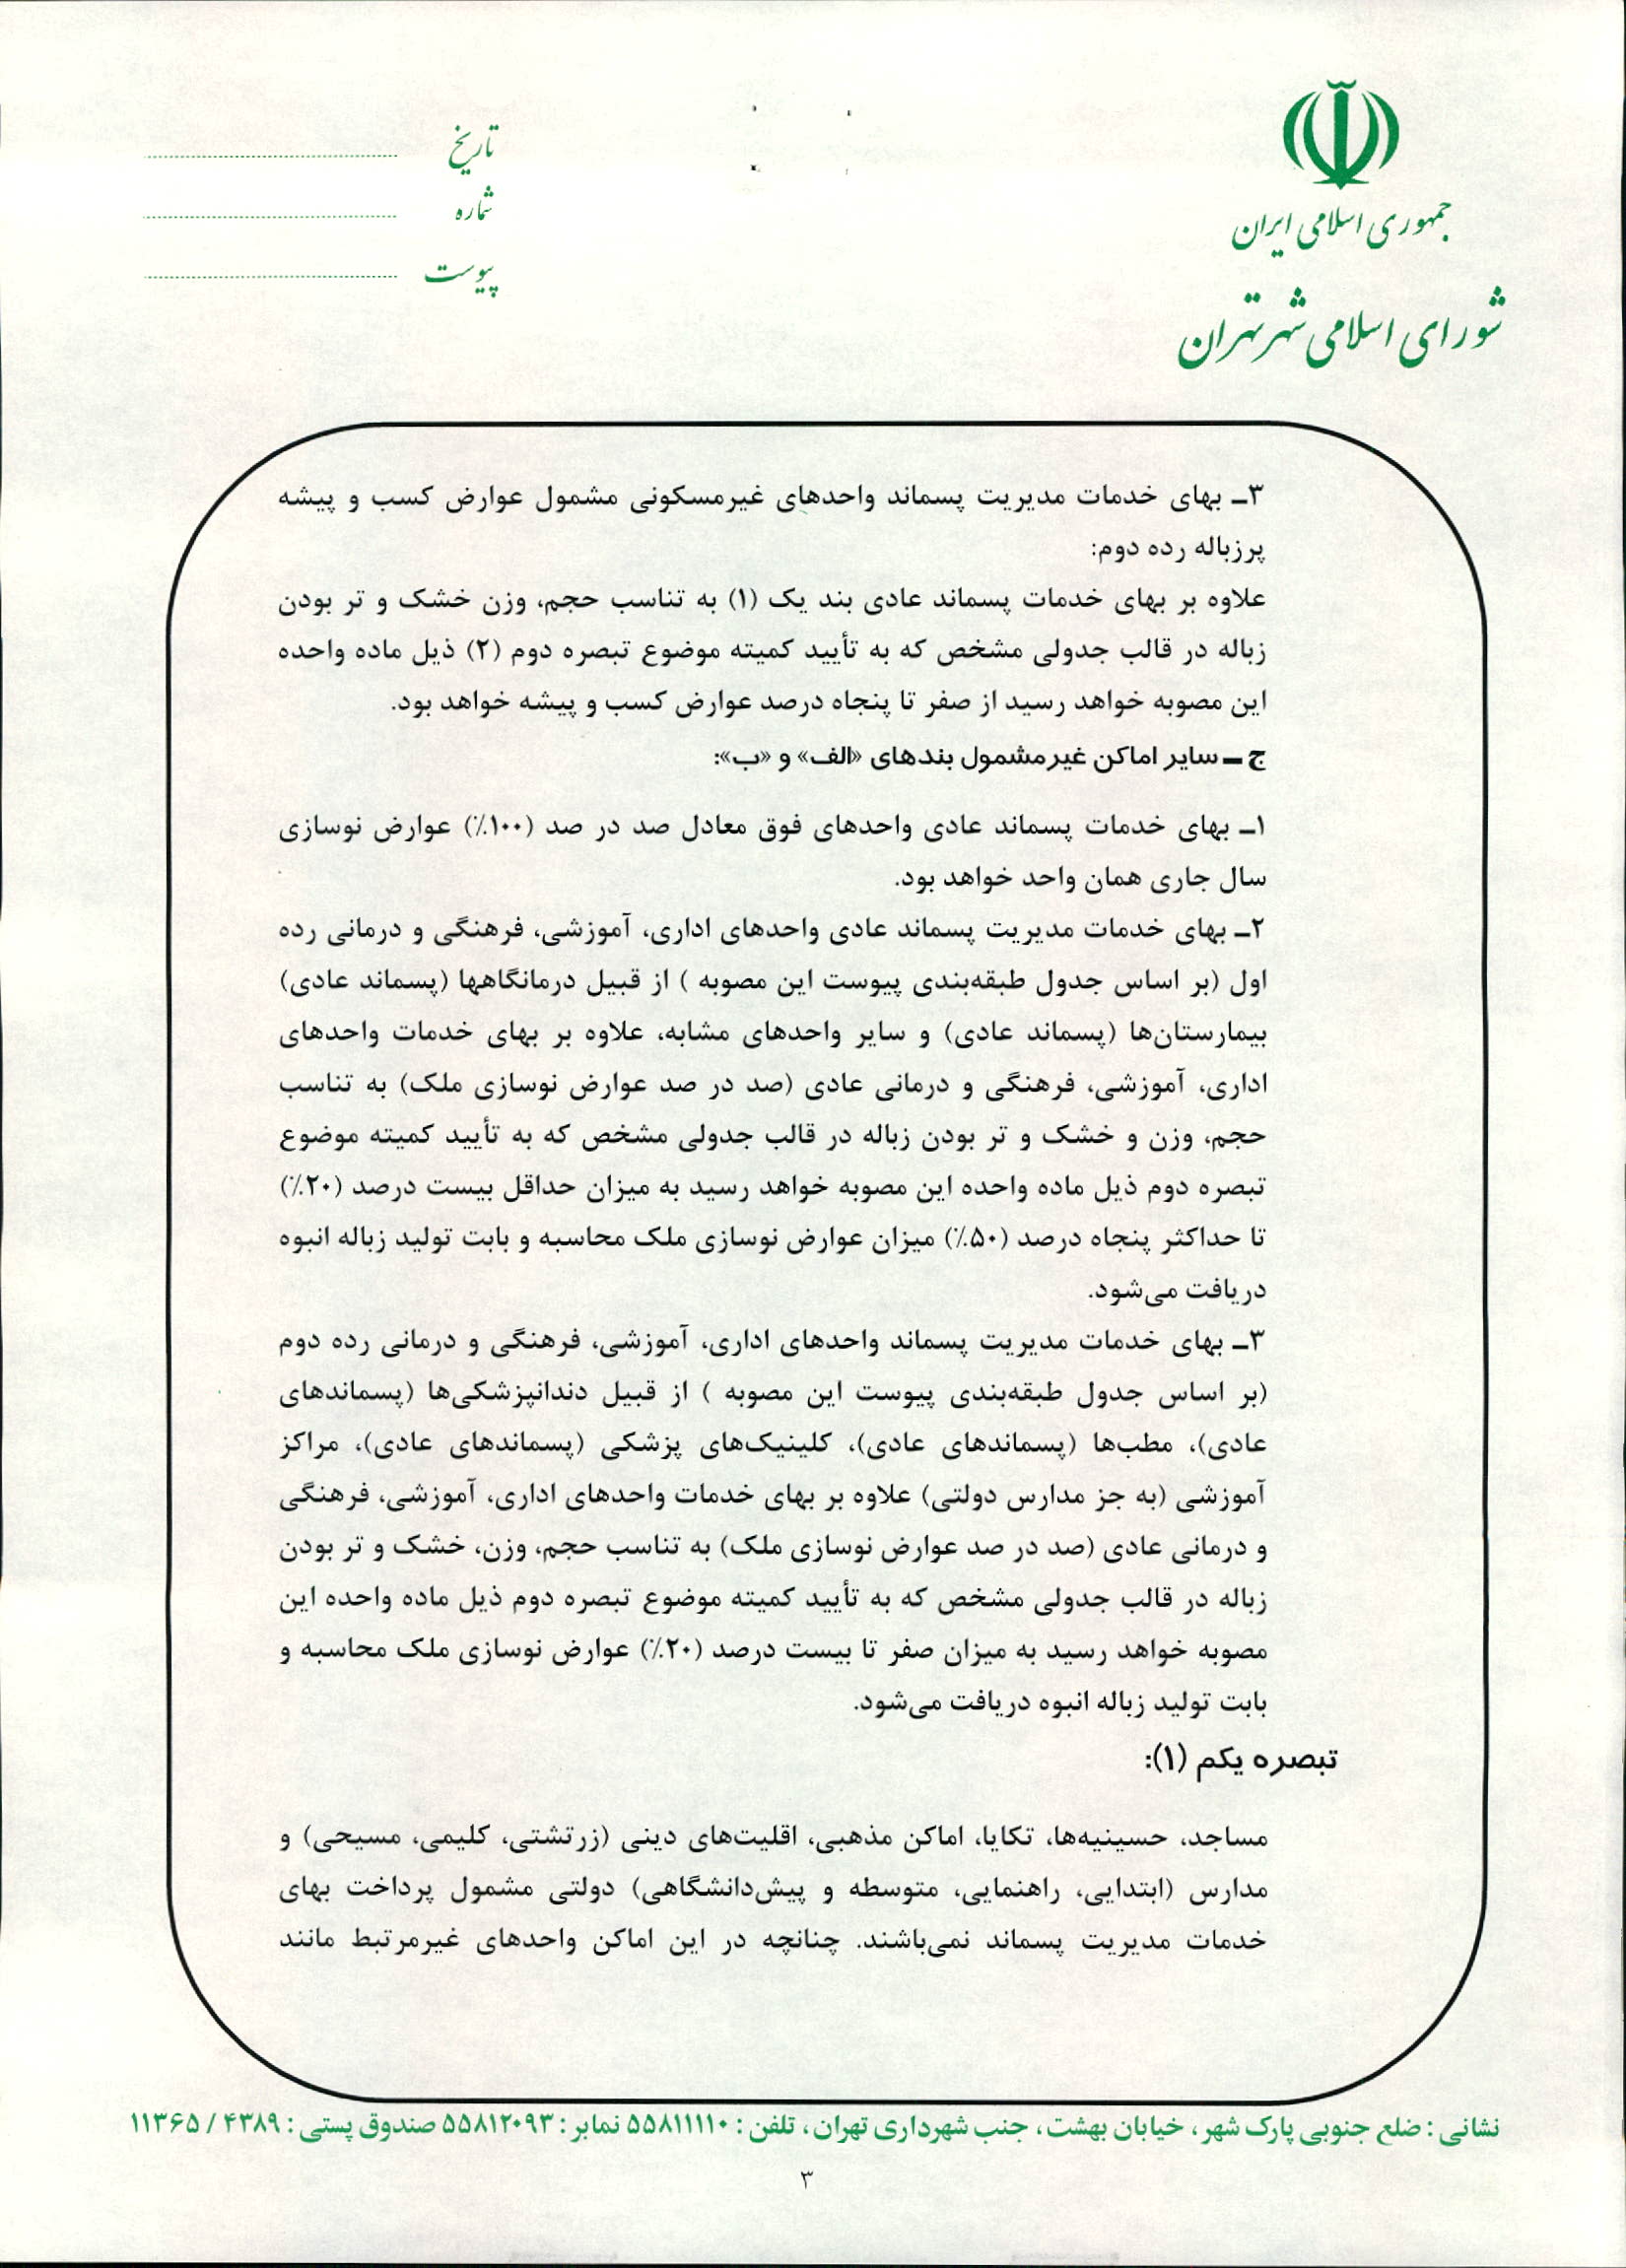 جمهوری اسلامی ایران
شورای اسلامی شهر تهران
تاریخ
شماره
پیوست
۳ـ بهای خدمات مدیریت پسماند واحدهای غیرمسکونی مشمول عوارض کسب و پیشه
پرزباله رده دوم:
علاوه بر بهای خدمات پسماند عادی بند یک (۱) به تناسب حجم، وزن خشک و تر بودن
زباله در قالب جدولی مشخص که به تأیید کمیته موضوع تبصره دوم (۲) ذیل ماده واحده
این مصوبه خواهد رسید از صفر تا پنجاه درصد عوارض کسب و پیشه خواهد بود.
ج ـ سایر اماکن غیرمشمول بندهای «الف» و «ب»:
۱ـ بهای خدمات پسماند عادی واحدهای فوق معادل صد در صد (۱۰۰٪) عوارض نوسازی
سال جاری همان واحد خواهد بود.
۲ـ بهای خدمات مدیریت پسماند عادی واحدهای اداری، آموزشی، فرهنگی و درمانی رده
اول (بر اساس جدول طبقه‌بندی پیوست این مصوبه ) از قبیل درمانگاهها (پسماند عادی)
بیمارستان‌ها (پسماند عادی) و سایر واحدهای مشابه، علاوه بر بهای خدمات واحدهای
اداری، آموزشی، فرهنگی و درمانی عادی (صد در صد عوارض نوسازی ملک) به تناسب
حجم، وزن و خشک و تر بودن زباله در قالب جدولی مشخص که به تأیید کمیته موضوع
تبصره دوم ذیل ماده واحده این مصوبه خواهد رسید به میزان حداقل بیست درصد (۲۰٪)
تا حداکثر پنجاه درصد (۵۰٪) میزان عوارض نوسازی ملک محاسبه و بابت تولید زباله انبوه
دریافت می‌شود.
۳ـ بهای خدمات مدیریت پسماند واحدهای اداری، آموزشی، فرهنگی و درمانی رده دوم
(بر اساس جدول طبقه‌بندی پیوست این مصوبه ) از قبیل دندانپزشکی‌ها (پسماندهای
عادی)، مطب‌ها (پسماندهای عادی)، کلینیک‌های پزشکی (پسماندهای عادی)، مراکز
آموزشی (به جز مدارس دولتی) علاوه بر بهای خدمات واحدهای اداری، آموزشی، فرهنگی
و درمانی عادی (صد در صد عوارض نوسازی ملک) به تناسب حجم، وزن، خشک و تر بودن
زباله در قالب جدولی مشخص که به تأیید کمیته موضوع تبصره دوم ذیل ماده واحده این
مصوبه خواهد رسید به میزان صفر تا بیست درصد (۲۰٪) عوارض نوسازی ملک محاسبه و
بابت تولید زباله انبوه دریافت می‌شود.
تبصره یکم (۱):
مساجد، حسینیه‌ها، تکایا، اماکن مذهبی، اقلیت‌های دینی (زرتشتی، کلیمی، مسیحی) و
مدارس (ابتدایی، راهنمایی، متوسطه و پیش‌دانشگاهی) دولتی مشمول پرداخت بهای
خدمات مدیریت پسماند نمی‌باشند. چنانچه در این اماکن واحدهای غیرمرتبط مانند
نشانی : ضلع جنوبی پارک شهر ، خیابان بهشت ، جنب شهرداری تهران ، تلفن : ۵۵۸۱۱۱۱۰ نمابر : ۵۵۸۱۲۰۹۳ صندوق پستی : ۴۳۸۹ / ۱۱۳۶۵
۳